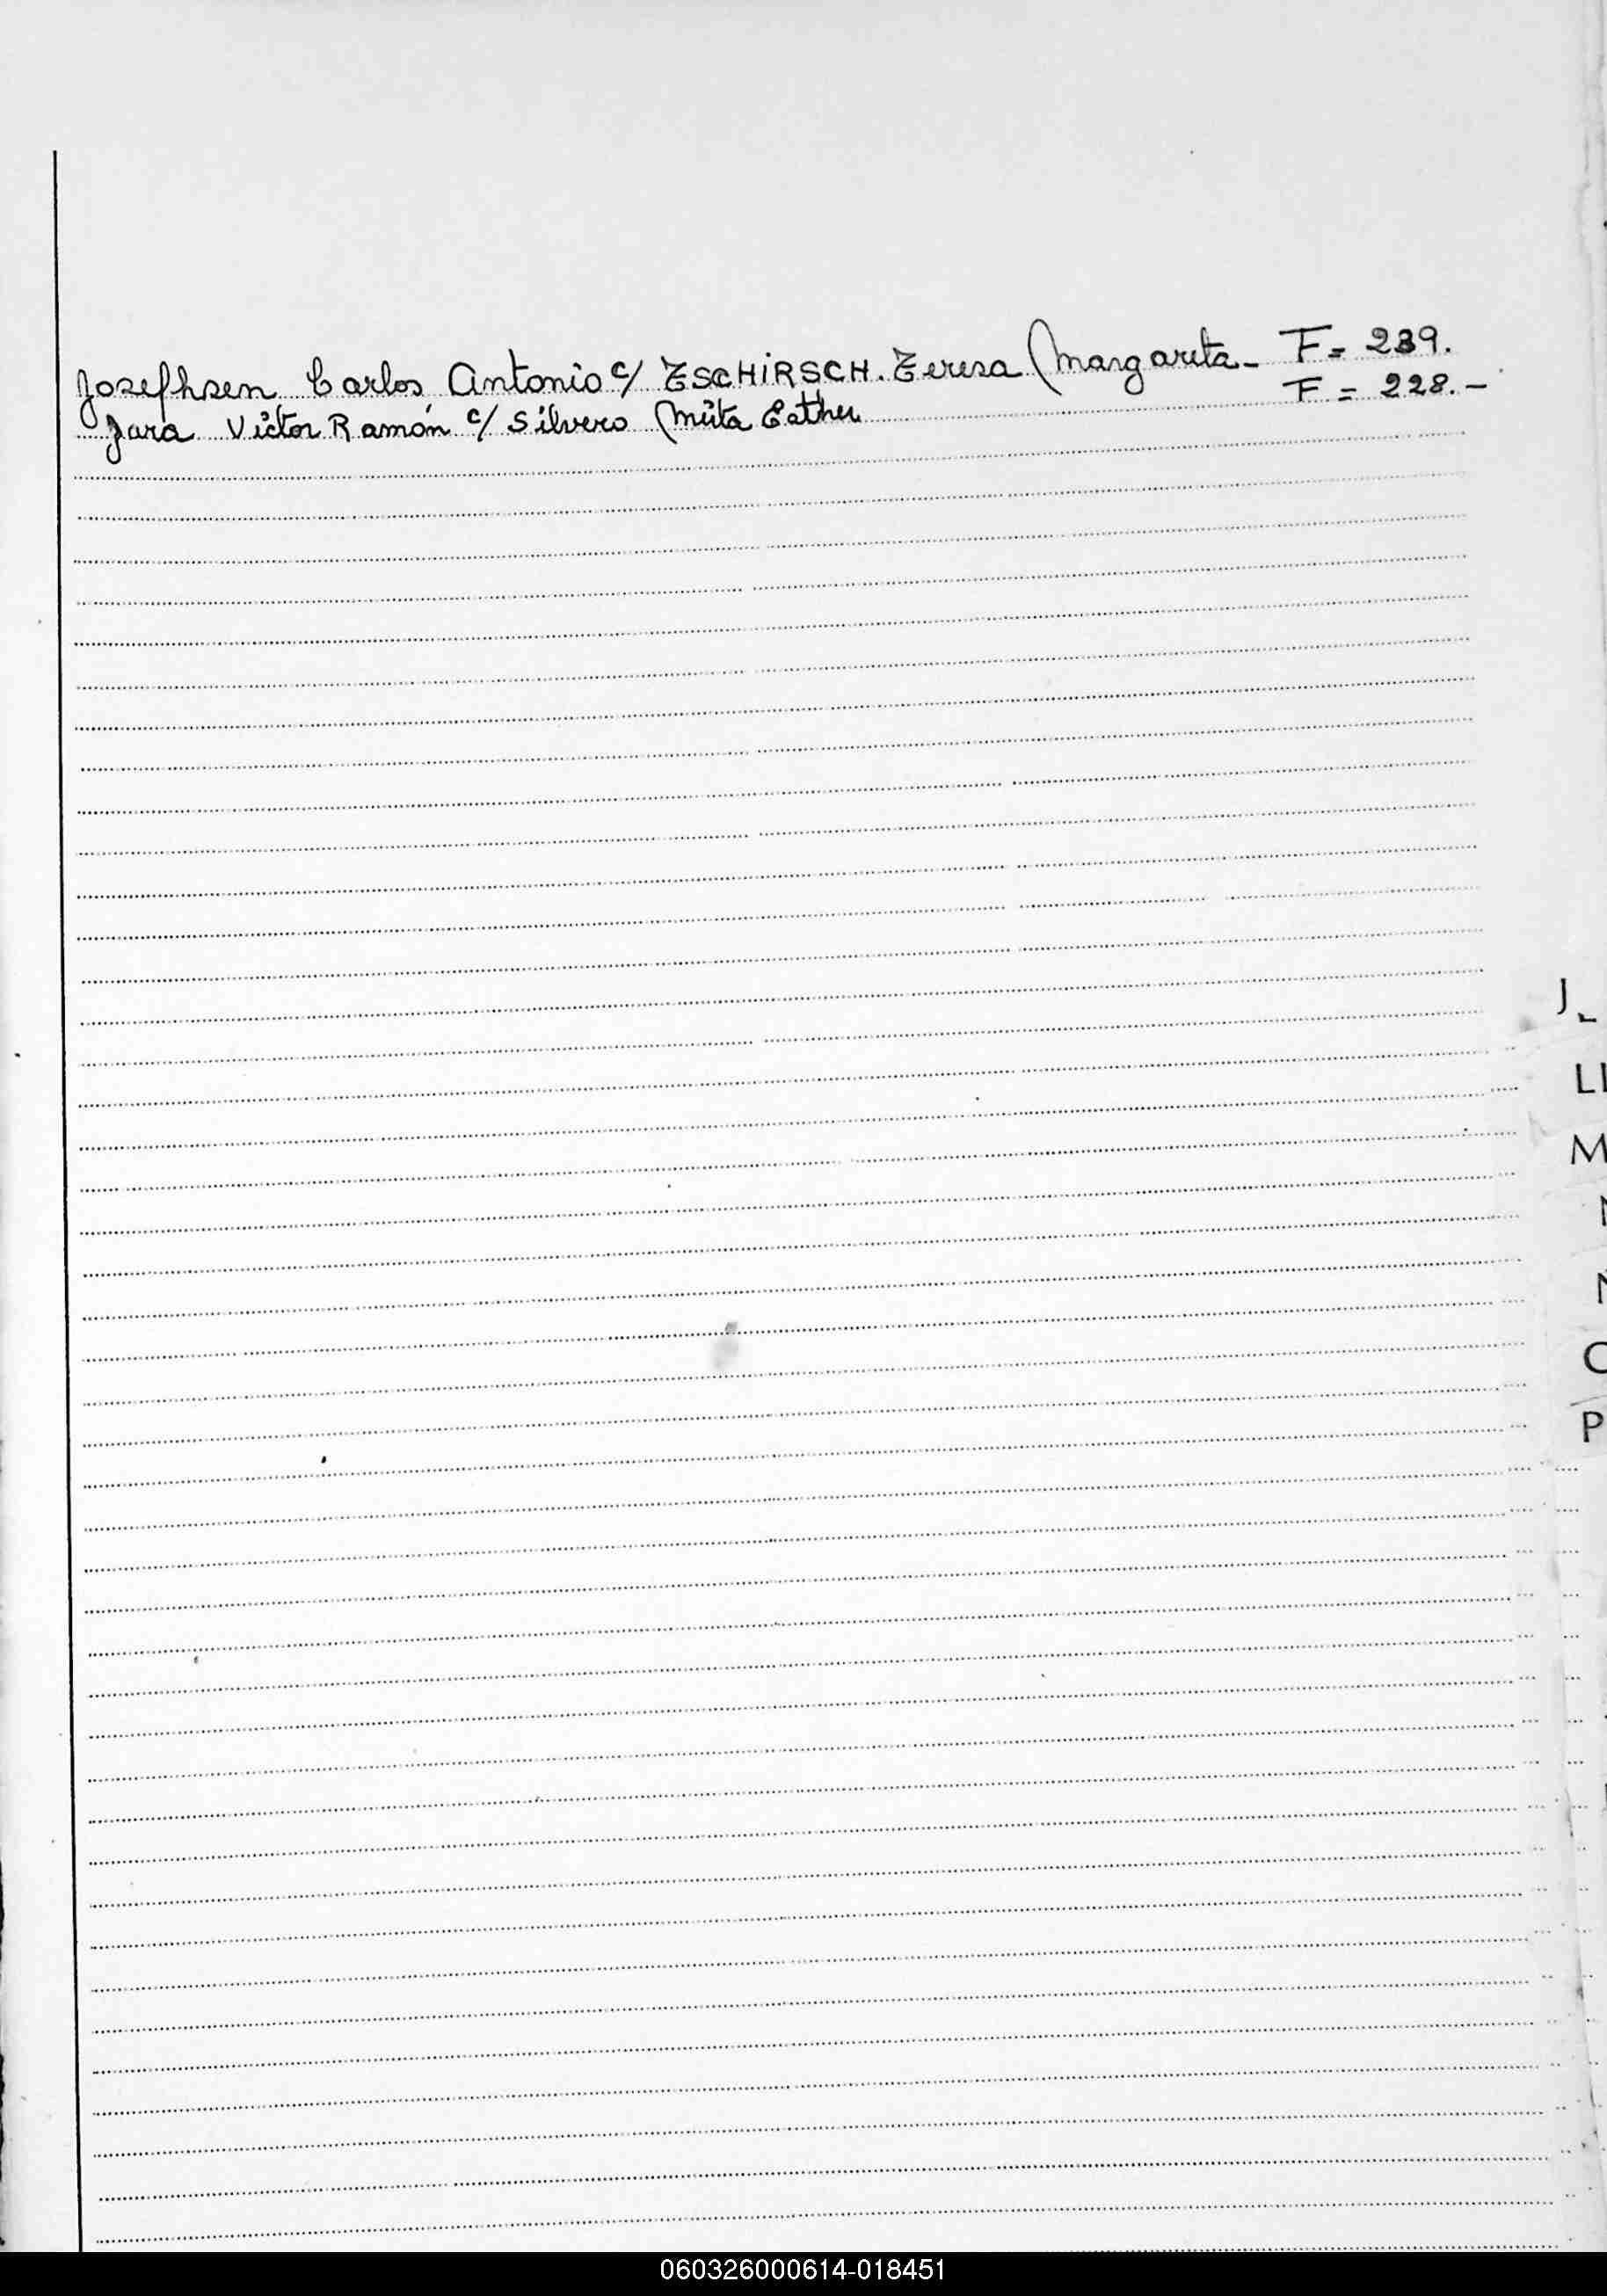 Josefhsen Carlos Antonio c/ TSCHIRSCH. Teresa Margarita - F = 239.
Jara Victor Ramón c/ Silvero Mirta Esther F = 228. -
J
LI
M
N
N
O
P
060326000614-018451